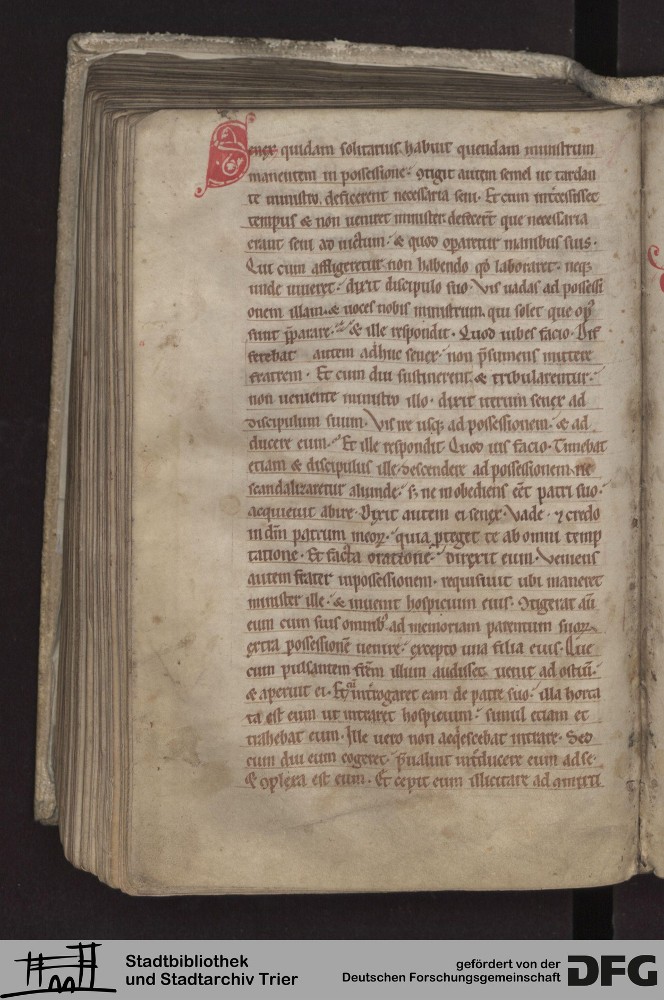 Senex quidam solitarius habuit quendam ministrum
manentem in possessione · 9tigit autem semel ut tardan
te ministro deficerent necessaria seni · Et cum int̾cessisset
tempus & non ueniret minister. deficer̄t que necessaria
erant seni ad uictum · & quod oparetur manibus suis ·
Qui cum affligeretur non habendo qd̓ laboraret · neq;
unde uiueret · dixit discipulo suo · Vis uadas ad possessi
onem illam · & uoces nobis ministrum qui solet que op̓
sunt p̄parare · & ille respondit · Quod iubes facio · Dif
ferebat autem adhuc senex · non p̄sumens mittere
fratrem · Et cum diu sustinerent & tribularentur ·
non ueniente ministro illo · dixit iterum senex ad
discipulum suum · Vis ire usq; ad possessionem · & ad
ducere eum · Et ille respondit Quod uis facio · Timebat
etiam & discipulus ille descendere ad possessionem · ne
scandalizaretur aliunde · s; ne inobediens eēt patri suo ·
acquieuit abire · Dixit autem ei senex · Vade · 7 credo
in dm̄ patrum meoꝝ · quia ꝓteget te ab omni temp
tatione · Et facta oratione · direxit eum · Veniens
autem frater in possessionem · requisiuit ubi maneret
minister ille · & inuenit hospicium eius · 9tigerat aū
eum cum suis omnib; ad memoriam parentum suoꝝ
extra possessionē uenire · excepto una filia eius · Que
cum pulsantem fr̄em illum audisset · uenit ad ostiū ·
& aperuit ei · Et q̄ int̾rogaret eam de patre suo · illa horta
ta est eum ut intraret hospicium · simul etiam et
trahebat eum · Ille uero non acq̓escebat intrare · Sed
cum diu eum cogeret · p̄ualuit int̾ducere eum ad se ·
& 9plexa est eum · Et cepit eum illicitare ad
Stadtbibliothek
und Stadtarchiv Trier
gefördert von der
Deutschen Forschungsgemeinschaft
DFG